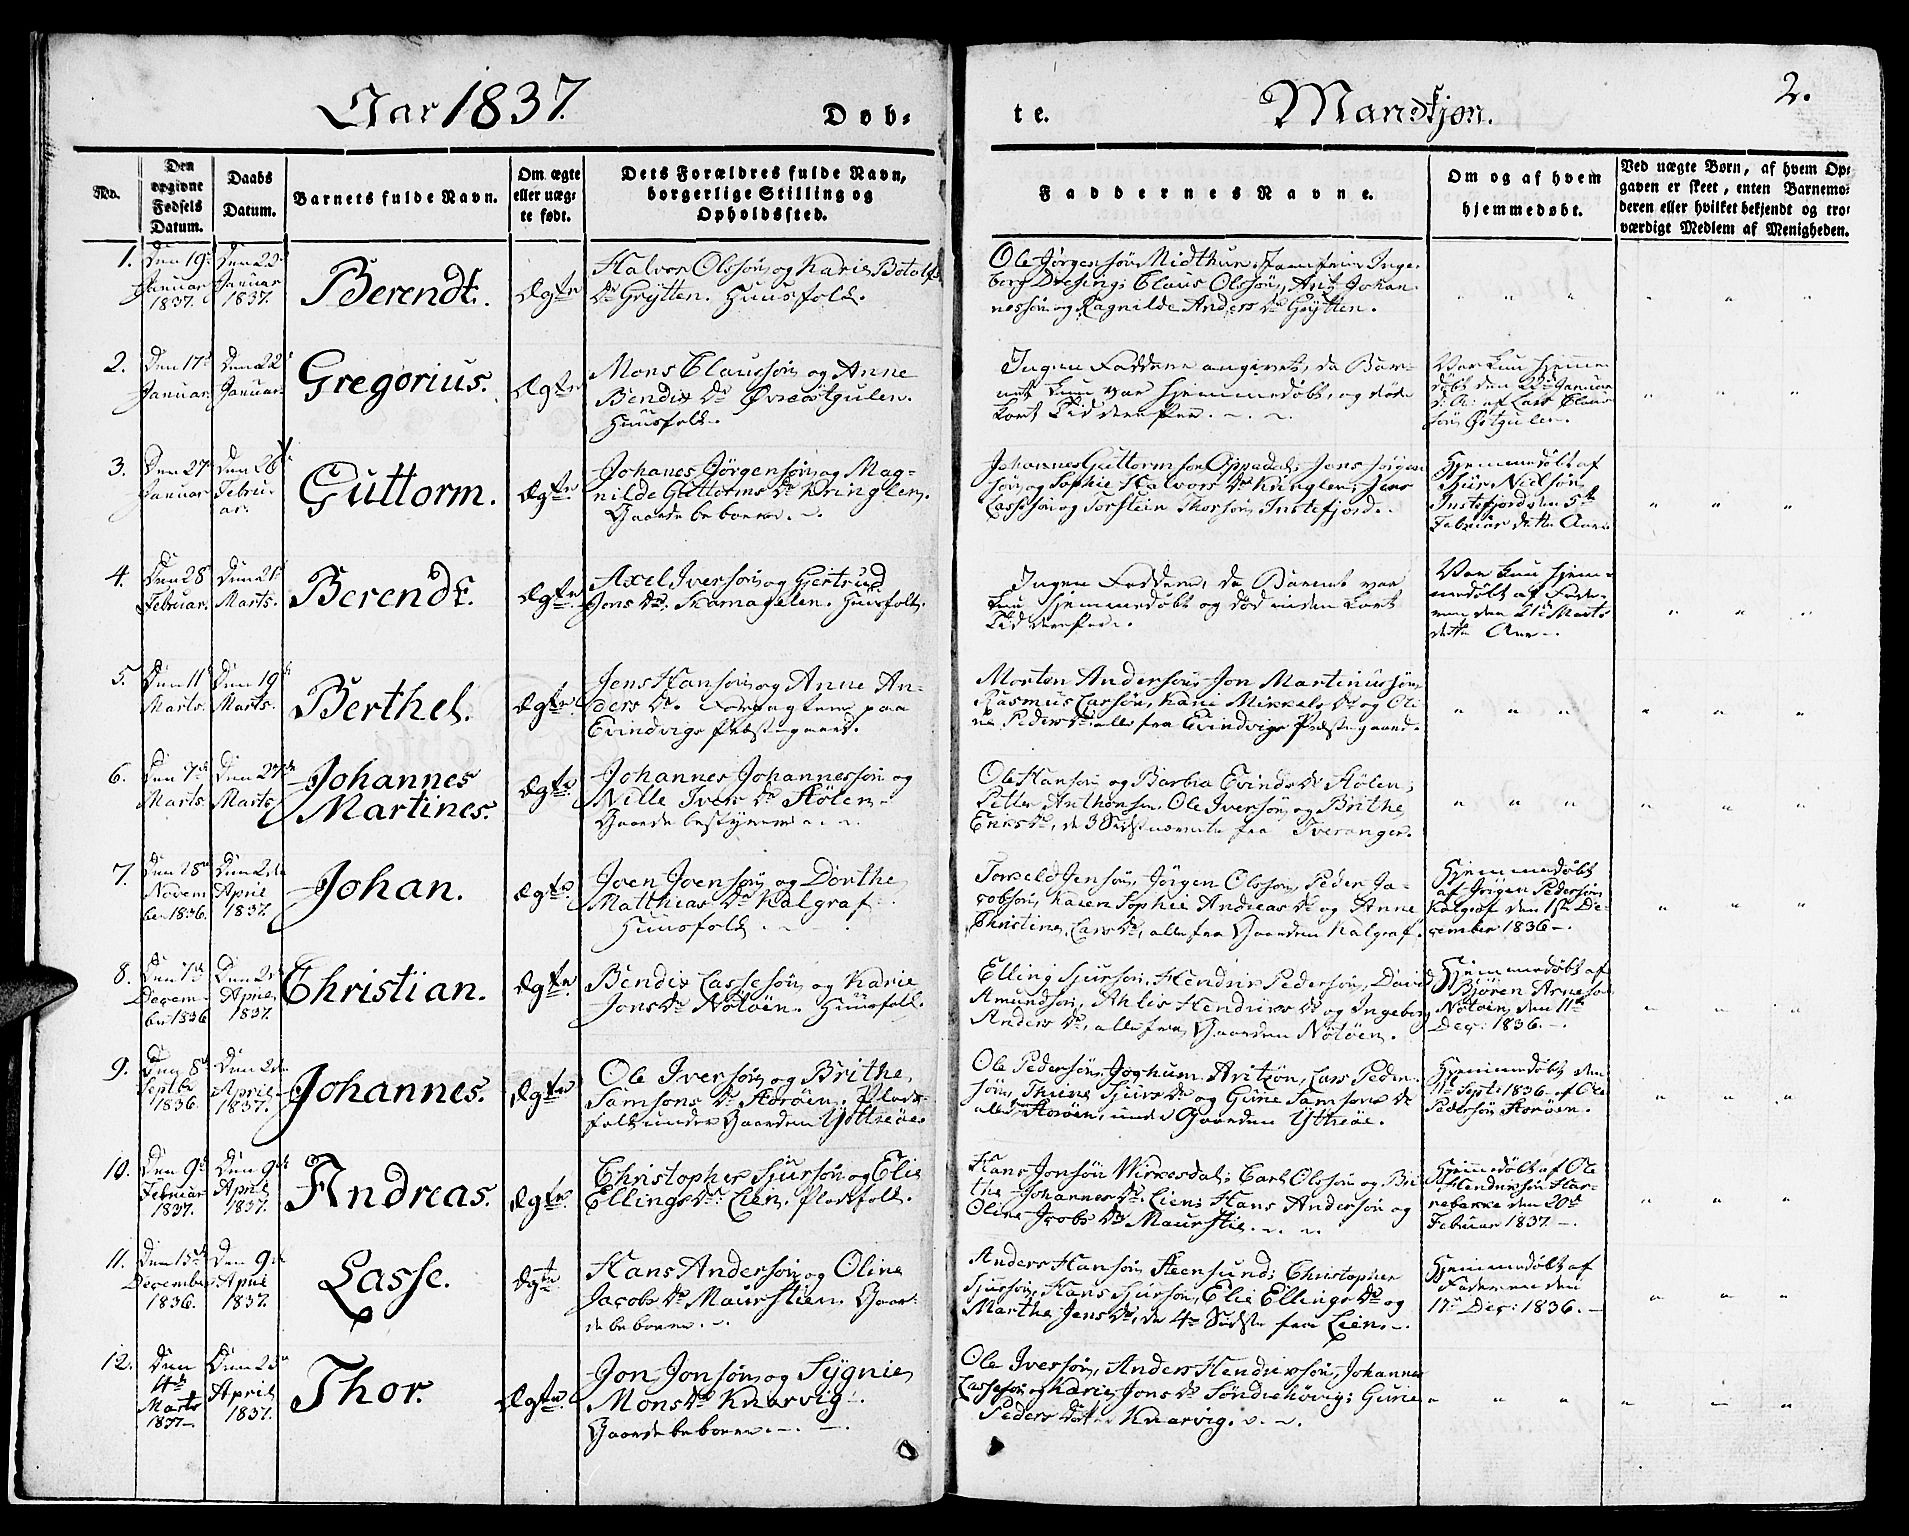 Aar 1837. Døb-
te. Mandkjøn. 2.
No.
Den opgivne Fødsels Datum.
Daabs Datum.
Barnets fulde Navn.
Om ægte eller uægte født.
Dets Forældres fulde Navn, borgerlige Stilling og Opholdssted.
Faddernes Navne.
Om og af hvem hjemmedøbt.
Ved uægte Børn, af hvem Opgaven er skeet, enten Barnemoderen eller hvilket bekjendt og troværdigt Medlem af Menigheden.
1.
Den 19de
Januar
1837.
Den 22de
Januar
1837.
Berendt.
Ægte
Halvor Olssøn og Karie Botolfs
Dr Grytten. Huusfolk.
Ole Jørgensøn Midthun, Jomfrue Inge-
berg Dreging; Claus Olssøn, Ant. Johan-
nessøn og Ragnilde Anders Dr Grytten.
2.
Den 17de
Januar.
Den 22de
Januar.
Gregorius.
Ægte
Mons Claussøn og Anne
Bendix Dr Østgulen.
Huusfolk.
Ingen Faddere angivet, da Bar-
net kun var hjemmedøbt, og døde
kort Tid derefter.
Var kun hjemme-
døbt den 22de Januar
d. A. af Lars Claus-
søn Østgulen.
3.
Den 27
Januar
Den 26
Febru-
ar.
Guttorm.
Ægte
Johanes Jørgensøn og Mag-
nilde Guttorms Dr Kringlen.
Gaardbeboere.
Johannes Guttormsøn Oppedal; Jens Jørgen-
søn og Sophie Halvors Dr Kringlen; Jens
Lassesøn og Torstein Thorsøn Instefjord.
Hjemmedøbt af
Sjur Nielsøn
Instefjord den 5te
Februar dette Aar.
4.
Den 28
Februar.
Den 21
Marts.
Berendt.
Ægte
Axel Iversøn og Gjertrud
Jons Dr. Huusfolk.
Ingen Faddere, da Barnet var
kun hjemmedøbt og død inden kort
Tid derefter.
Var kun hjem-
medøbt af Fade-
ren den 21de Marts
dette Aar.
5.
Den 11
Marts.
Den 19de
Marts.
Berthel.
Ægte
Jens Hansøn og Anne An-
ders Dr. Forpagtere paa
Evindvigs Præstegaard.
Morten Andersøn, Jon Martinussøn,
Rasmus Larsøn, Karie Mikkels Dr og Oli-
ne Peders Dr, alle fra Evindvigs Præstegaard.
6.
Den 7de
Marts
Den 27de
Marts
Johannes
Martines.
Ægte
Johannes Johannessøn og
Nille Ivers Dr Hølen
Gaardbestyrere
Ole Hansøn og Barbra Evinds Dr Hølen;
Petter Anthonsøn, Ole Iversøn og Brithe
Eriks Dr, de 3 Sidstnævnte fra Tveranger.
7.
Den 18
Novem-
ber 1836.
Den 2de
April
1837.
Johan.
Ægte
Joen Joensøn og Dorthe
Matthias Dr Kalgraf
Huusfolk
Torkeld Jensøn, Jørgen Olssøn, Peder Ja-
cobsøn, Karen Sophie Andreas Dr og Anne
Christine Lars Dr, alle fra Gaarden Kalgraf.
Hjemmedøbt
af Jørgen Pedersøn
Kalgraf den 1ste De-
cember 1836.
8.
Den 7de
Decem-
ber 1836
Den 2de
April
1837.
Christian.
Ægte
Bendix Lassesøn og Karie
Jons Dr Notøen. Huusfolk.
Elling Sjursøn, Hendrik Pedersøn, David
Amundsøn, Ahlis Hendriks Dr og Ingeborg
Anders Dr, alle fra Gaarden Notøen.
Hjemmedøbt af
Bjøren Arnesøn
Notøen den 11te
Dec: 1836.
9.
Den 8de
Septbr
1836.
Den 2de
April
1837.
Johannes.
Ægte
Ole Iversøn og Brithe
Samsons Dr Storøen. Plads-
folk under Gaarden Yttreøe.
Ole Pedersøn, Joghum Aritzøn, Lars Peder-
søn, Thrine Sjurs Dr og Gurie Samsons Dr
alle Storøen, under Gaarden Yttreøe.
Hjemmedøbt den
11te Septb 1836 af Ole
Pedersøn Storøen.
10.
Den 9de
Februar
1837.
Den 9de
April
1837.
Andreas.
Ægte
Christopher Sjursøn og Elie
Ellings Dr. Lien. Pladsfolk.
Hans Jonsøn Virkesdal; Carl Olssøn og Bri-
the Johannes Dr. Lien; Hans Andersøn og
Oline Jacobs Dr Maurstie.
Hjemmedøbt af Ole
Hendriksøn Har-
rebakke den 20de
Februar 1837.
11.
Den 15de
December
1836.
Den 9de
April
1837.
Lasse.
Ægte
Hans Andersøn og Oline
Jacobs Dr Maurstien. Gaar-
debeboere.
Anders Hansøn Steensund; Christopher
Sjursøn, Hans Sjursøn, Elie Ellings Dr og
Marthe Jens Dr, de 4re Sidste fra Lien.
Hjemmedøbt af
Faderen den
17de Dec: 1836.
12.
Den
4de
Marts
1837
Den 23de
April
1837.
Thor.
Ægte.
Jon Jonsøn og Sygnie
Mons Dr Knarvig.
Gaardbeboere.
Ole Iversøn, Anders Hendriksøn, Johannes
Lassesøn og Karie Jons Dr Søndrehøvig; Gurie
Peders Datter Knarvig.